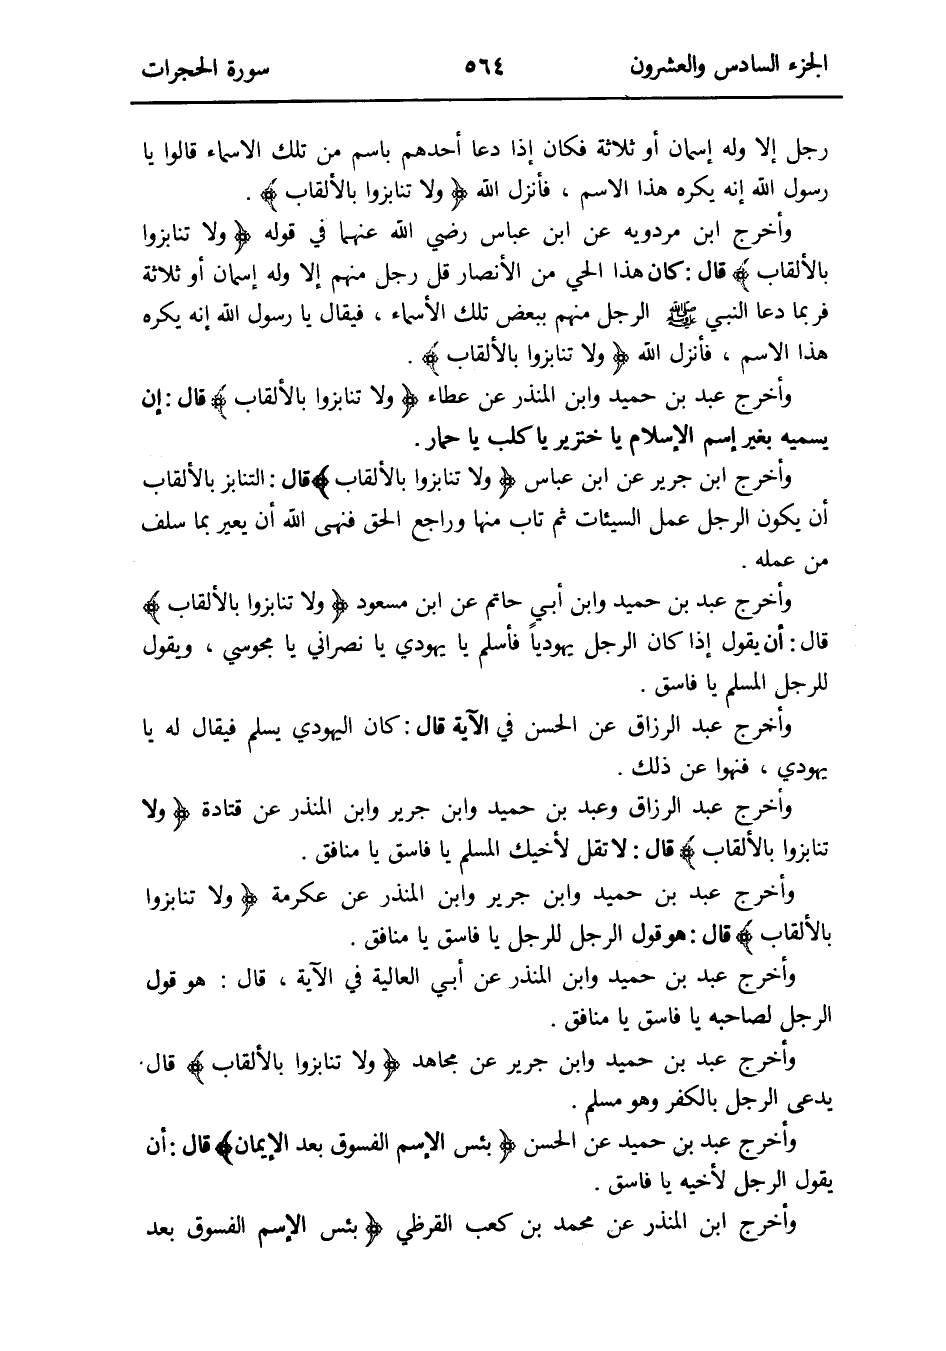 الجزء السادس والعشرون ٥٦٤ سورة الحجرات
رجل إلا وله إسمان أو ثلاثة فكان إذا دعا أحدهم باسم من تلك الاسماء قالوا يا
رسول الله إنه يكره هذا الاسم ، فأنزل الله ﴿ ولا تنابزوا بالألقاب ﴾ .
وأخرج ابن مردويه عن ابن عباس رضي الله عنهما في قوله ﴿ ولا تنابزوا
بالألقاب ﴾ قال : كان هذا الحي من الأنصار قل رجل منهم إلا وله إسمان أو ثلاثة
فربما دعا النبي ﷺ الرجل منهم ببعض تلك الأسماء ، فيقال يا رسول الله إنه يكره
هذا الاسم ، فأنزل الله ﴿ ولا تنابزوا بالألقاب ﴾ .
وأخرج عبد بن حميد وابن المنذر عن عطاء ﴿ ولا تنابزوا بالألقاب ﴾ قال : إن
يسميه بغير إسم الإسلام يا خنزير يا كلب يا حمار .
وأخرج ابن جرير عن ابن عباس ﴿ ولا تنابزوا بالألقاب ﴾ قال : التنابز بالألقاب
أن يكون الرجل عمل السيئات ثم تاب منها وراجع الحق فنهى الله أن يعير بما سلف
من عمله .
وأخرج عبد بن حميد وابن أبي حاتم عن ابن مسعود ﴿ ولا تنابزوا بالألقاب ﴾
قال : أن يقول إذا كان الرجل يهودياً فأسلم يا يهودي يا نصراني يا مجوسي ، ويقول
للرجل المسلم يا فاسق .
وأخرج عبد الرزاق عن الحسن في الآية قال : كان اليهودي يسلم فيقال له يا
يهودي ، فنهوا عن ذلك .
وأخرج عبد الرزاق وعبد بن حميد وابن جرير وابن المنذر عن قتادة ﴿ ولا
تنابزوا بالألقاب ﴾ قال : لا تقل لأخيك المسلم يا فاسق يا منافق .
وأخرج عبد بن حميد وابن جرير وابن المنذر عن عكرمة ﴿ ولا تنابزوا
بالألقاب ﴾ قال : هو قول الرجل للرجل يا فاسق يا منافق .
وأخرج عبد بن حميد وابن المنذر عن أبي العالية في الآية ، قال : هو قول
الرجل لصاحبه يا فاسق يا منافق .
وأخرج عبد بن حميد وابن جرير عن مجاهد ﴿ ولا تنابزوا بالألقاب ﴾ قال
يدعى الرجل بالكفر وهو مسلم .
وأخرج عبد بن حميد عن الحسن ﴿ بئس الإسم الفسوق بعد الإيمان ﴾ قال : أن
يقول الرجل لأخيه يا فاسق .
وأخرج ابن المنذر عن محمد بن كعب القرظي ﴿ بئس الإسم الفسوق بعد